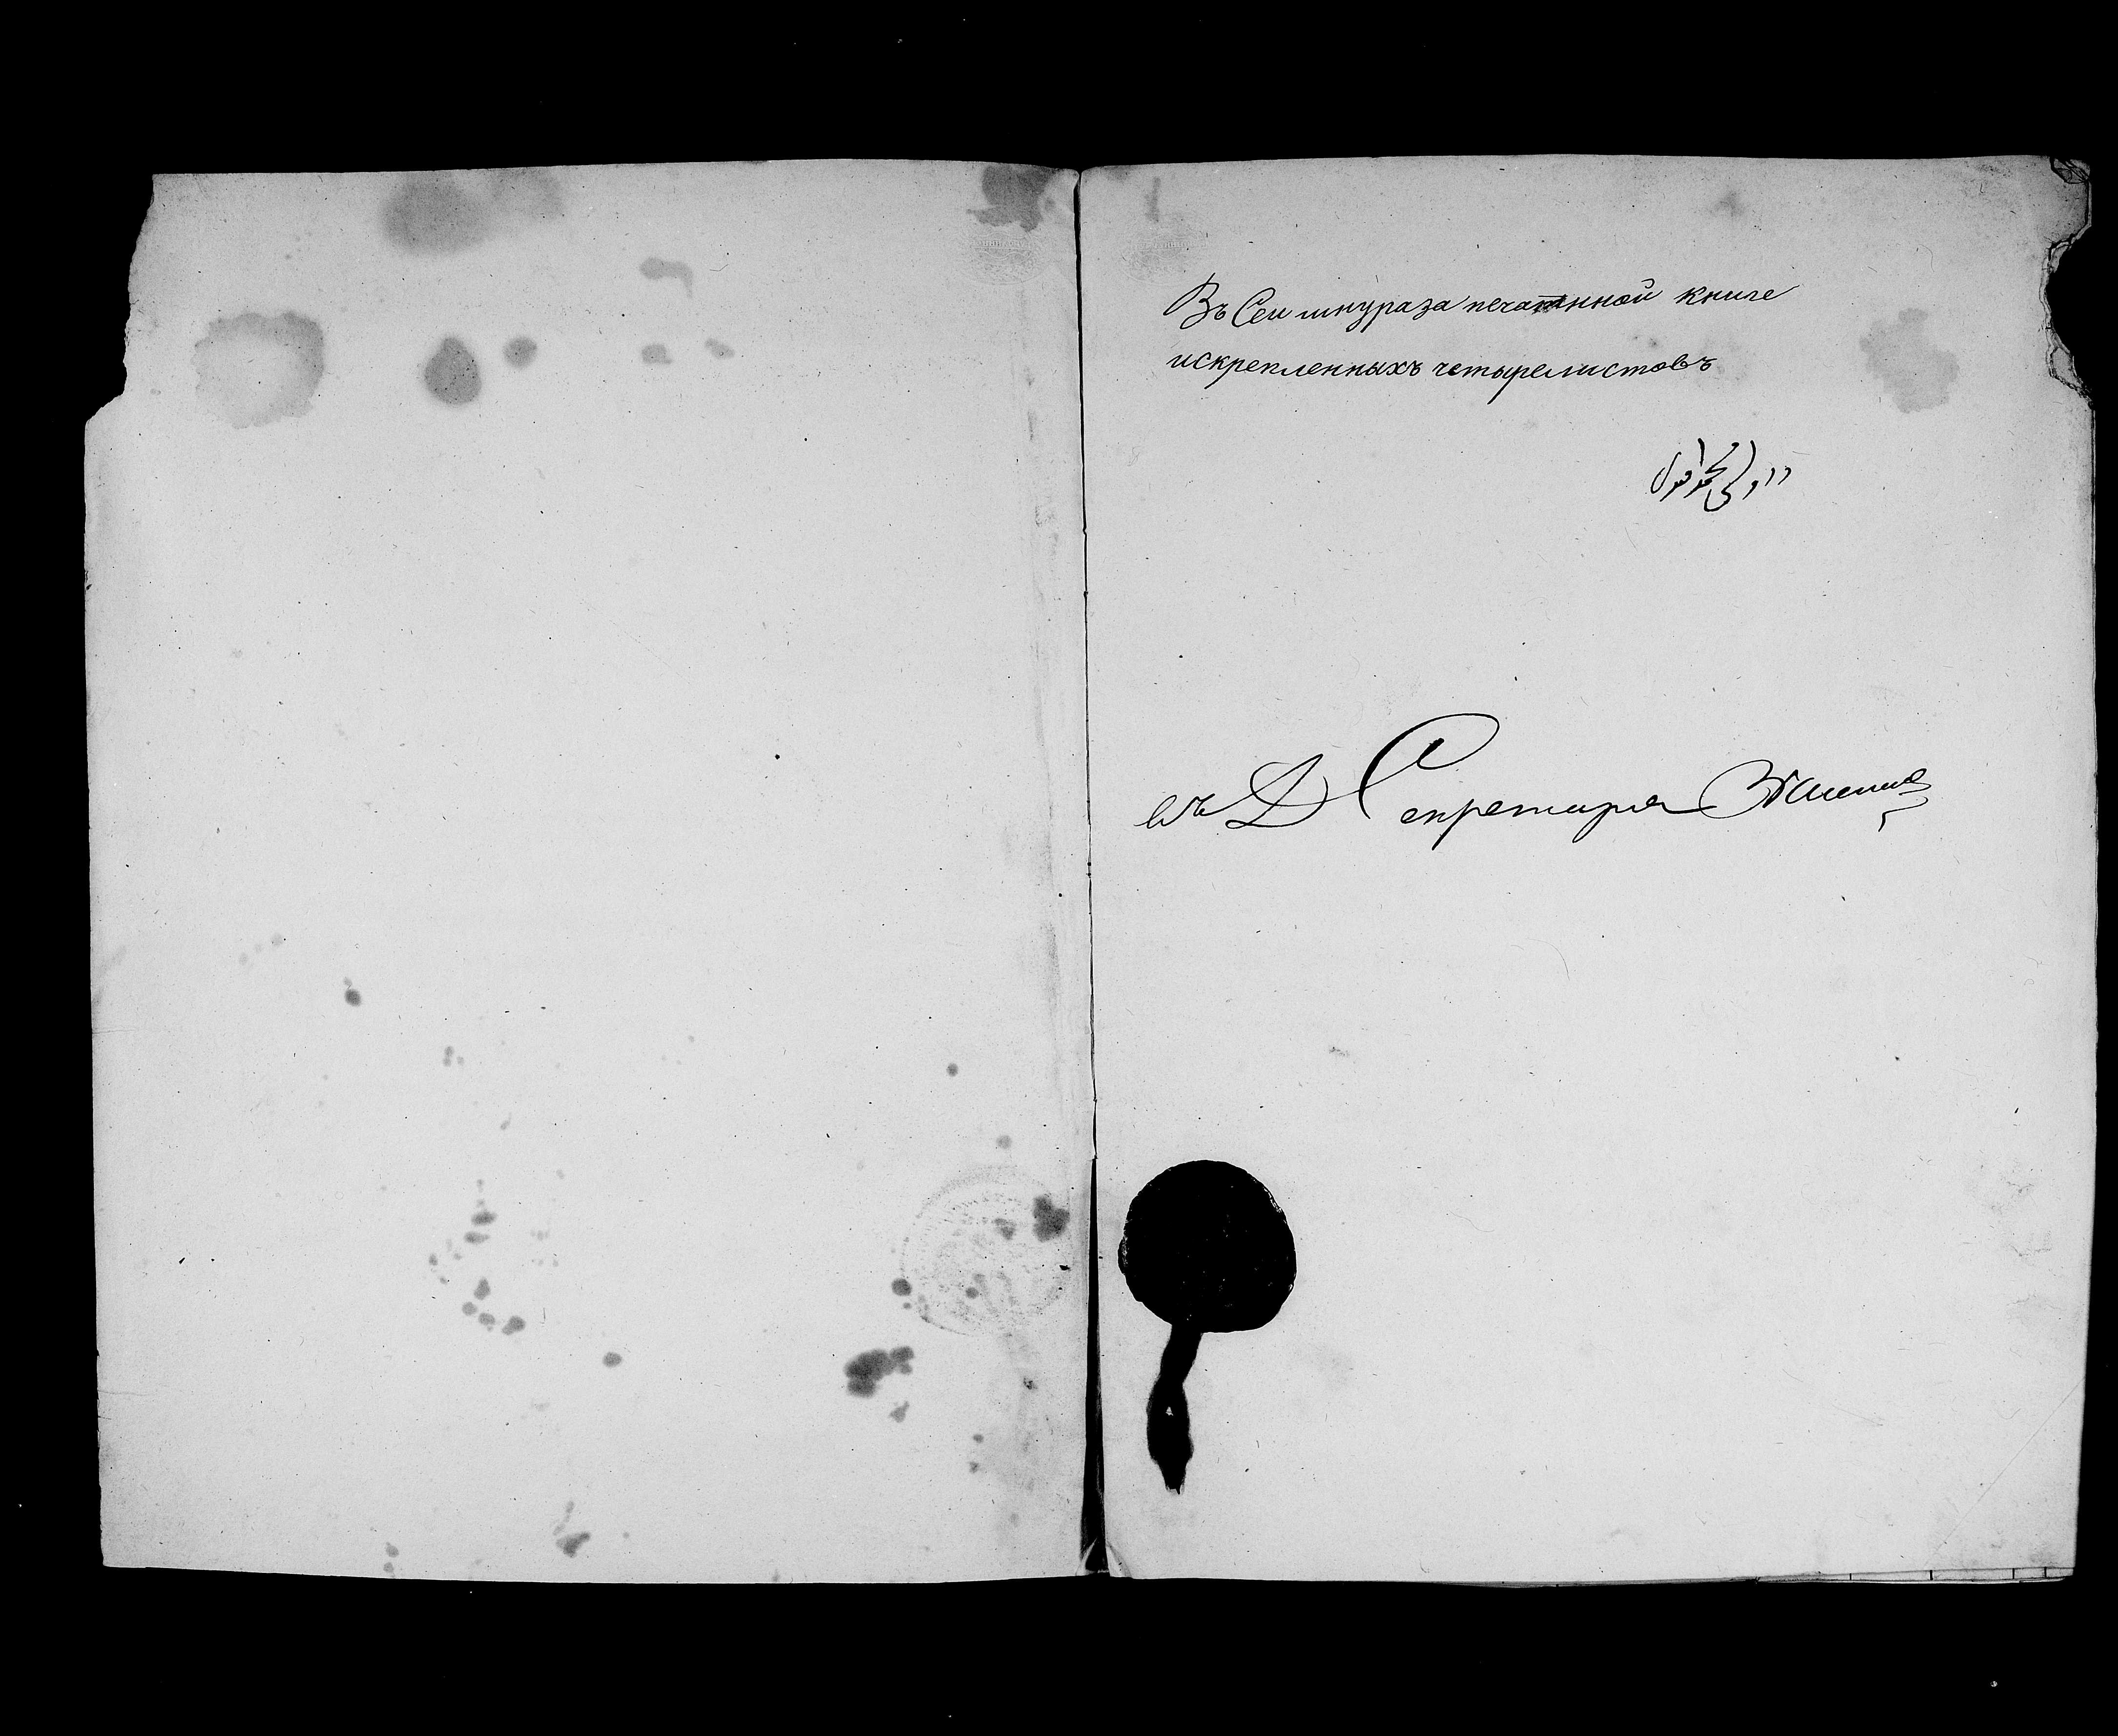 Въ Сеи шнураза печатнной книге
искрепленныхъ четырелистовъ
въ Д Секретаря